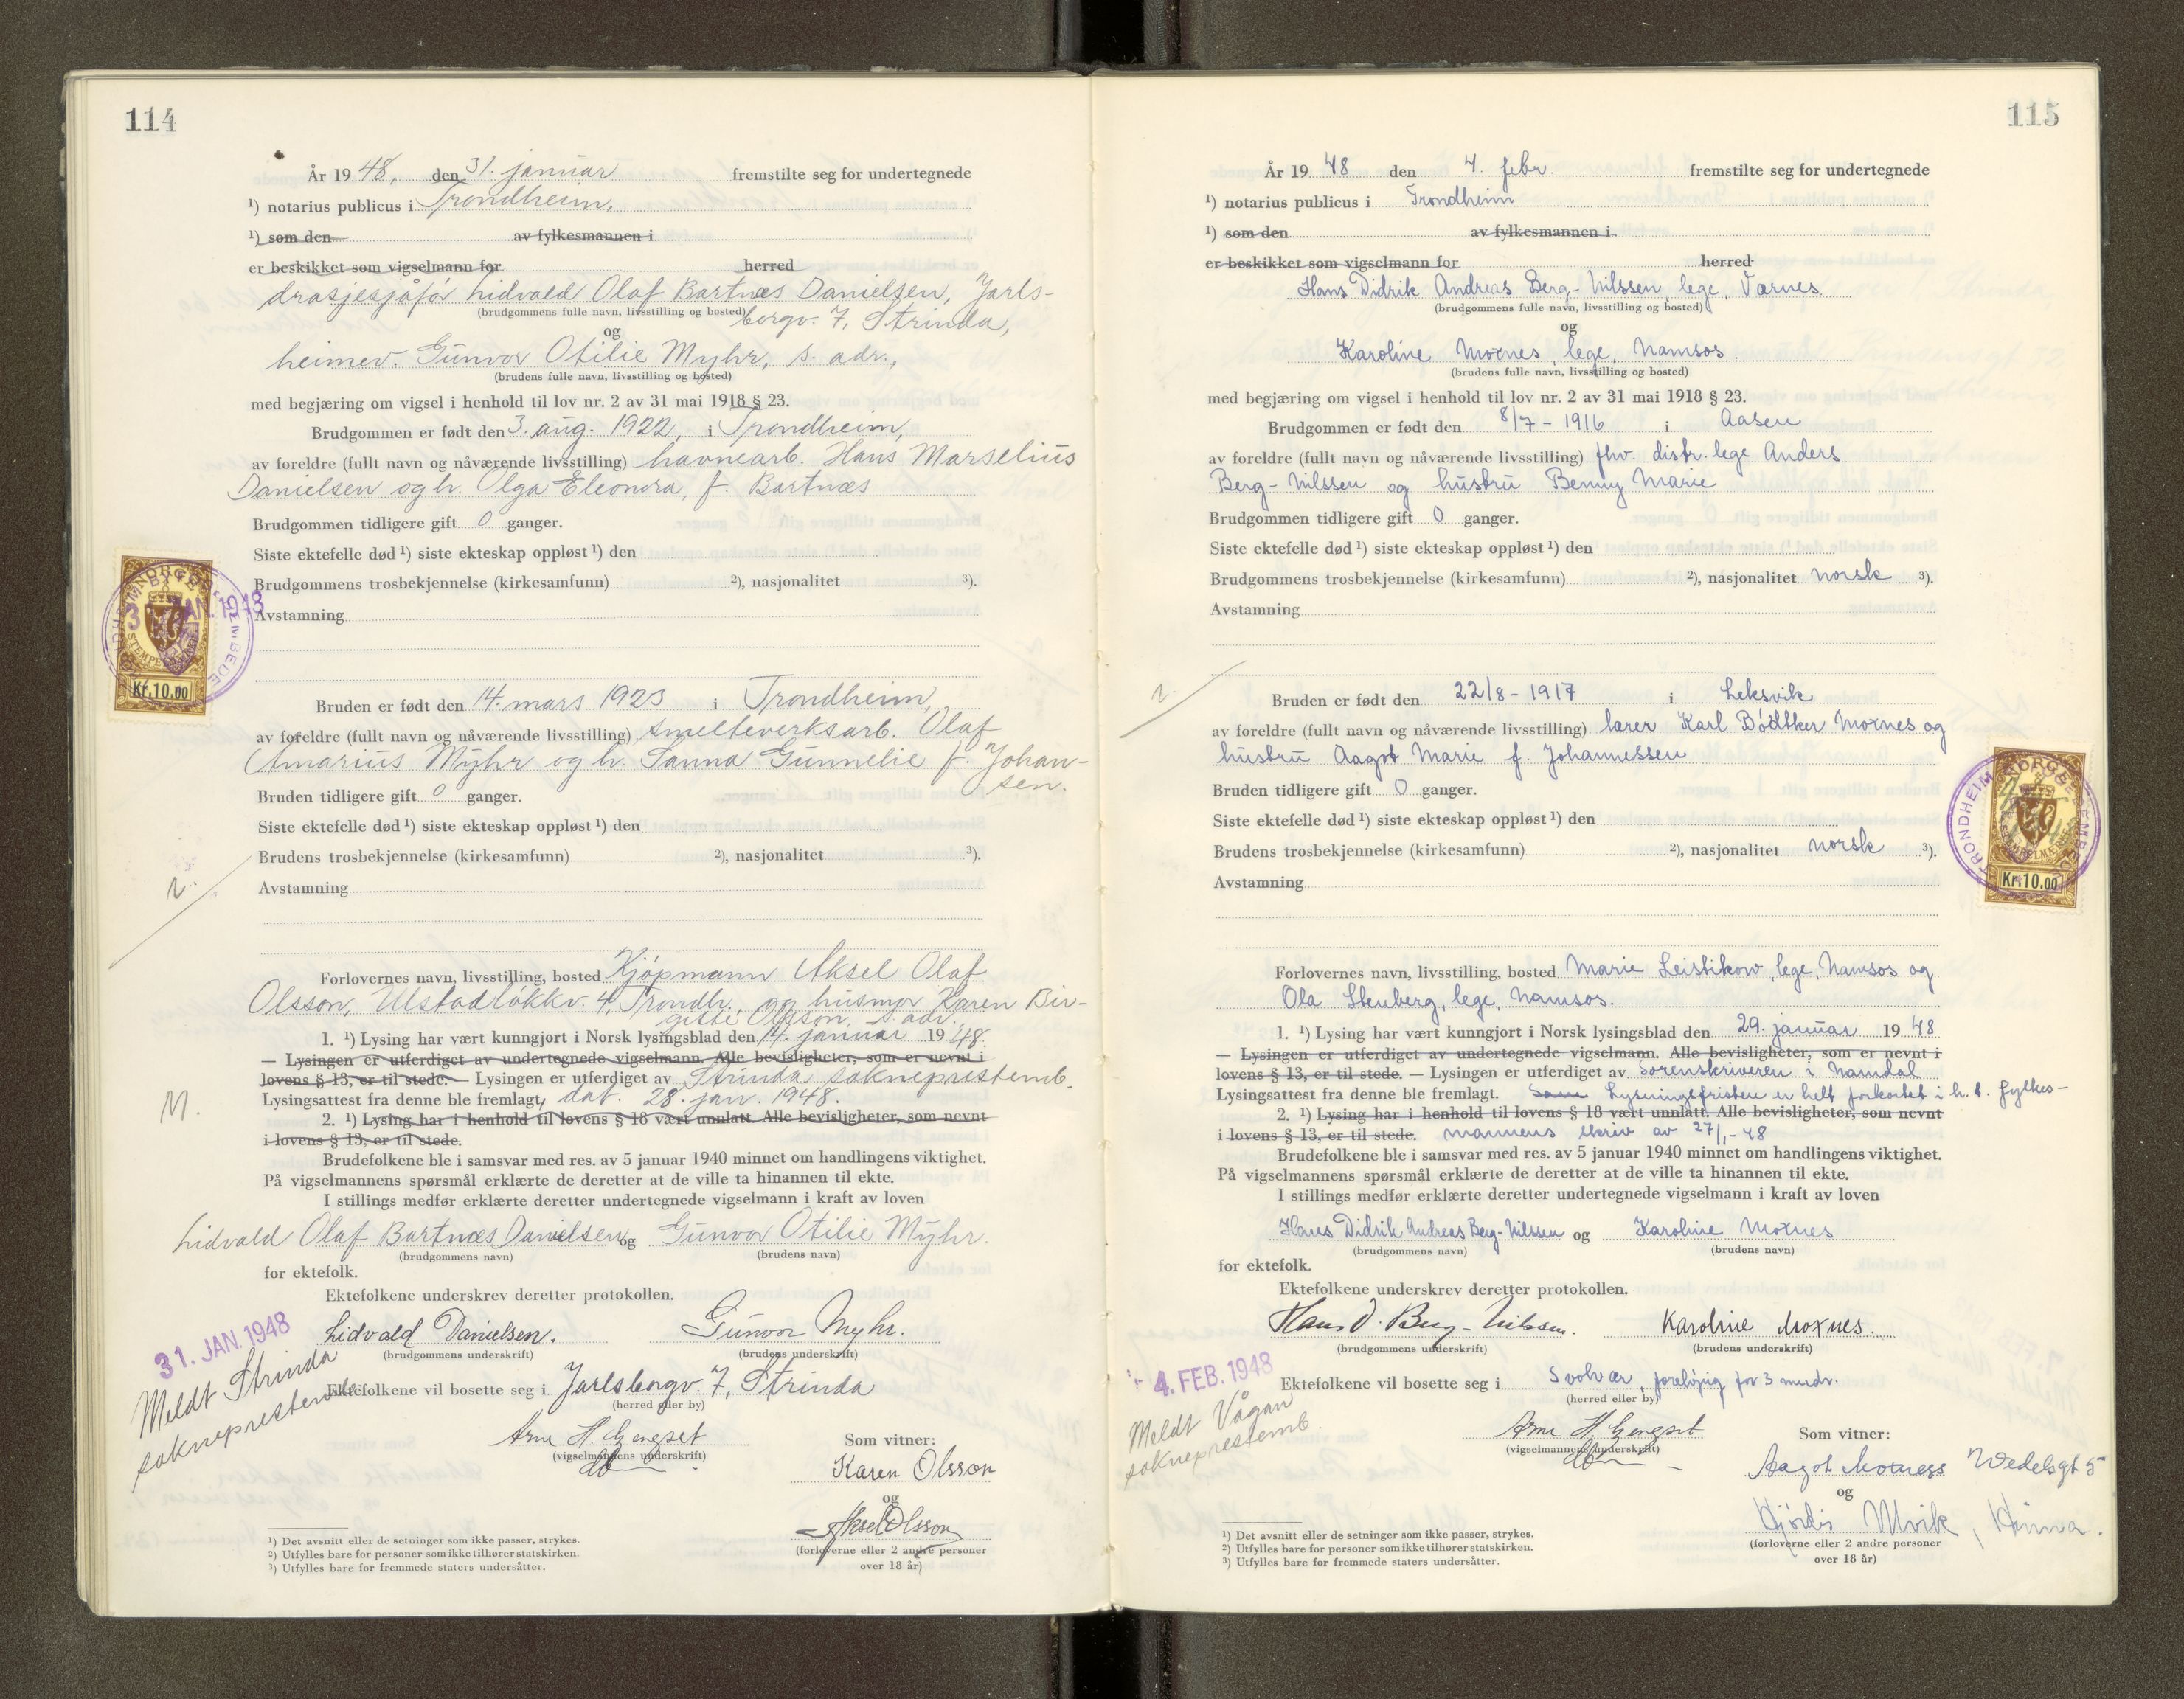 114
År 19 48, den 31. januar fremstilte seg for undertegnede
¹) notarius publicus i Trondheim,
¹) som den av fylkesmannen i
er beskikket som vigselmann for herred
drosjesjåfør Lidvald Olaf Bartnæs Danielsen, Jarls-
(brudgommens fulle navn, livsstilling og bosted) bergv. 7, Strinda,
og
heimev. Gunvor Otilie Myhr, s. adr.,
(brudens fulle navn, livsstilling og bosted)
med begjæring om vigsel i henhold til lov nr. 2 av 31 mai 1918 § 23.
Brudgommen er født den 3. aug. 1922, i Trondheim,
av foreldre (fullt navn og nåværende livsstilling) havnearb. Hans Marselius
Danielsen og h. Olga Eleonora, f. Bartnæs
Brudgommen tidligere gift 0 ganger.
Siste ektefelle død ¹) siste ekteskap oppløst ¹) den
Brudgommens trosbekjennelse (kirkesamfunn) ²), nasjonalitet ³).
Avstamning
Kr.10.00
Bruden er født den 14. mars 1923 i Trondheim,
av foreldre (fullt navn og nåværende livsstilling) smelteverksarb. Olaf
Amarius Myhr og h. Sanna Gunnelie f. Johan-
sen.
Bruden tidligere gift 0 ganger.
Siste ektefelle død ¹) siste ekteskap oppløst ¹) den
Brudens trosbekjennelse (kirkesamfunn) ²), nasjonalitet ³).
Avstamning
Forlovernes navn, livsstilling, bosted Kjøpmann Aksel Olaf
Olsson, Ulstadløkkv. 4, Trondh., og husmor Karen Bir-
gitte Olsson, s. adr.
1. ¹) Lysing har vært kunngjort i Norsk lysingsblad den 14. januar 19 48.
— Lysingen er utferdiget av undertegnede vigselmann. Alle bevisligheter, som er nevnt i
lovens § 13, er til stede. — Lysingen er utferdiget av Strinda sokneprestemb.
Lysingsattest fra denne ble fremlagt, dat. 28. jan. 1948.
M.
2. ¹) Lysing har i henhold til lovens § 18 vært unnlatt. Alle bevisligheter, som nevnt
i lovens § 13, er til stede.
Brudefolkene ble i samsvar med res. av 5 januar 1940 minnet om handlingens viktighet.
På vigselmannens spørsmål erklærte de deretter at de ville ta hinannen til ekte.
I stillings medfør erklærte deretter undertegnede vigselmann i kraft av loven
Lidvald Olaf Bartnæs Danielsen og Gunvor Otilie Myhr.
(brudgommens navn) (brudens navn)
for ektefolk.
Ektefolkene underskrev deretter protokollen.
31. JAN. 1948
Lidvald Danielsen. Gunvor Myhr.
(brudgommens underskrift) (brudens underskrift)
Meldt Strinda
sokneprestemb.
Ektefolkene vil bosette seg i Jarlsbergv. 7, Strinda
(herred eller by)
Arne H. Gengset
(vigselmannens underskrift)
Som vitner:
Karen Olsson
og
Aksel Olsson
(forloverne eller 2 andre personer
over 18 år)
¹) Det avsnitt eller de setninger som ikke passer, strykes.
²) Utfylles bare for personer som ikke tilhører statskirken.
³) Utfylles bare for fremmede staters undersåtter.
115
År 19 48 den 4. febr. fremstilte seg for undertegnede
¹) notarius publicus i Trondheim
¹) som den av fylkesmannen i
er beskikket som vigselmann for herred
Hans Didrik Andreas Berg-Nilssen, lege, Værnes
(brudgommens fulle navn, livsstilling og bosted)
og
Karoline Moxnes, lege, Namsos.
(brudens fulle navn, livsstilling og bosted)
med begjæring om vigsel i henhold til lov nr. 2 av 31 mai 1918 § 23.
Brudgommen er født den 8/7 - 1916 i Aasen
av foreldre (fullt navn og nåværende livsstilling) fhv. distr. lege Anders
Berg-Nilssen og hustru Benny Marie
Brudgommen tidligere gift 0 ganger.
Siste ektefelle død ¹) siste ekteskap oppløst ¹) den
Brudgommens trosbekjennelse (kirkesamfunn) ²), nasjonalitet norsk ³).
Avstamning
Bruden er født den 22/8 - 1917 i Leksvik
av foreldre (fullt navn og nåværende livsstilling) lærer Karl Bødtker Moxnes og
hustru Aagot Marie f. Johannessen
Bruden tidligere gift 0 ganger.
Siste ektefelle død ¹) siste ekteskap oppløst ¹) den
Brudens trosbekjennelse (kirkesamfunn) ²), nasjonalitet norsk ³).
Avstamning
Kr.10.00
Forlovernes navn, livsstilling, bosted Marie Leistikow, lege, Namsos og
Ola Stenberg, lege, Namsos.
1. ¹) Lysing har vært kunngjort i Norsk lysingsblad den 29. januar 19 48
— Lysingen er utferdiget av undertegnede vigselmann. Alle bevisligheter, som er nevnt i
lovens § 13, er til stede. — Lysingen er utferdiget av Sorenskriveren i Namdal
Lysingsattest fra denne ble fremlagt. Lysningsfristen er helt forkortet i h. t. fylkes-
2. ¹) Lysing har i henhold til lovens § 18 vært unnlatt. Alle bevisligheter, som nevnt
i lovens § 13, er til stede. mannens skriv av 27/1-48
Brudefolkene ble i samsvar med res. av 5 januar 1940 minnet om handlingens viktighet.
På vigselmannens spørsmål erklærte de deretter at de ville ta hinannen til ekte.
I stillings medfør erklærte deretter undertegnede vigselmann i kraft av loven
Hans Didrik Andreas Berg-Nilssen og Karoline Moxnes
(brudgommens navn) (brudens navn)
for ektefolk.
Ektefolkene underskrev deretter protokollen.
Hans D. Berg-Nilssen. Karoline Moxnes.
(brudgommens underskrift) (brudens underskrift)
4. FEB. 1948
Meldt Vågan
sokneprestemb.
Ektefolkene vil bosette seg i Svolvær, foreløpig for 3 mndr.
(herred eller by)
Arne H. Gengset
(vigselmannens underskrift)
Som vitner:
Aagot Moxness Wedelsgt 5
og
Hjørdis Ulvik, Hinna.
(forloverne eller 2 andre personer
over 18 år)
¹) Det avsnitt eller de setninger som ikke passer, strykes.
²) Utfylles bare for personer som ikke tilhører statskirken.
³) Utfylles bare for fremmede staters undersåtter.